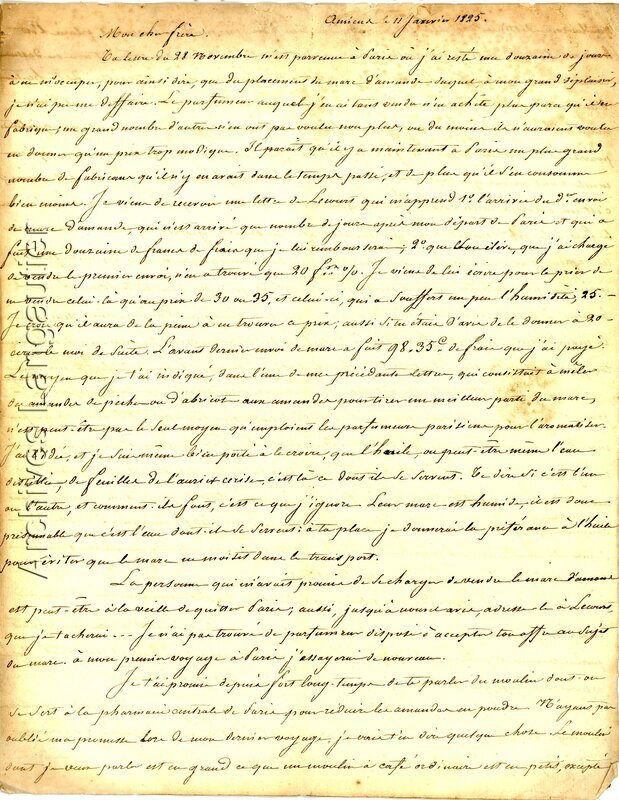 Amiens le 11 Janvier 1825.
Mon cher frère.
Ta lettre du 28 Novembre m'est parvenue à Paris où j'ai resté une douzaine de jours
à ne m'occuper, pour ainsi dire, que du placement du marc d'amande duquel à mon grand déplaisir,
je n'ai pu me deffaire. Le parfumeur auquel j'en ai tant vendu n'en achète plus parce qu'il en
fabrique; un grand nombre d'autres n'en ont pas voulu non plus, ou du moins ils n'auraient voulu
en donner qu'un prix trop modique. Il paraît qu'il y a maintenant à Paris un plus grand
nombre de fabricans qu'il n'y en avait dans le temps passé, et de plus qu'il s'en consomme
bien moins. Je viens de recevoir une lettre de Lecours qui m'apprend 1° l'arrivée du dr. envoi
de marc d'amande qui n'est arrivé que nombre de jours après mon départ de Paris et qui a
fait une douzaine de francs de frais que je lui rembourserai; 2° que que j'ai chargé
de vendre le premier envoi, n'en a trouvé que 20 f. %. Je viens de lui écrire pour le prier de
ne vendre celui-là qu'au prix de 30 ou 25, et celui-ci, qui a souffert un peu l'humidité, 25.-
Je crois qu'il aura de la peine à en trouver ce prix; aussi si tu étais d'avis de le donner à 20
de suite. L'avant dernier envoi de marc a fait 98.35c de frais que j'ai payé.
Le moyen que je t'ai indiqué, dans l'une de mes précédantes lettres, qui consistait à mêler
des amandes de pêche ou d'abricot aux amandes pour tirer un meilleur parti du marc,
n'est peut-être pas le seul moyen qu'emploient les parfumeurs parisiens pour l'aromatiser.
J'ai l'idée, et je suis même bien porté à le croire, que l'huile, ou peut-être même l'eau
distillée, de feuilles de laurier cerise, c'est là ce dont ils se servent. Te dire si c'est l'un
ou l'autre, et comment ils font, c'est ce que j'ignore. Leur marc est humide, il est donc
présumable que c'est l'eau dont ils se servent: à ta place je donnerais la préférance à l'huile
pour éviter que le marc ne moisit dans le transport.
La personne qui m'avait promis de se charger de vendre le marc d'amande
est peut-être à la veille de quitter Paris; aussi, jusqu'à nouvel avis, adresse le à Lecours,
que je tacherai... Je n'ai pas trouvé de parfumeur disposé à accepter ton offre au sujet
du marc. à mon premier voyage à Paris j'essayerai de nouveau.
Je t'ai promis depuis fort long-temps de te parler du moulin dont on
se sert à la pharmacie centrale de Paris pour réduire les amandes en poudre. N'ayant pas
oublié ma promesse lors de mon dernier voyage, je vais t'en dire quelque chose. Le moulin
dont je veux parler est en grand ce que un moulin à café ordinaire est en petit, excepté
Archives Largautier